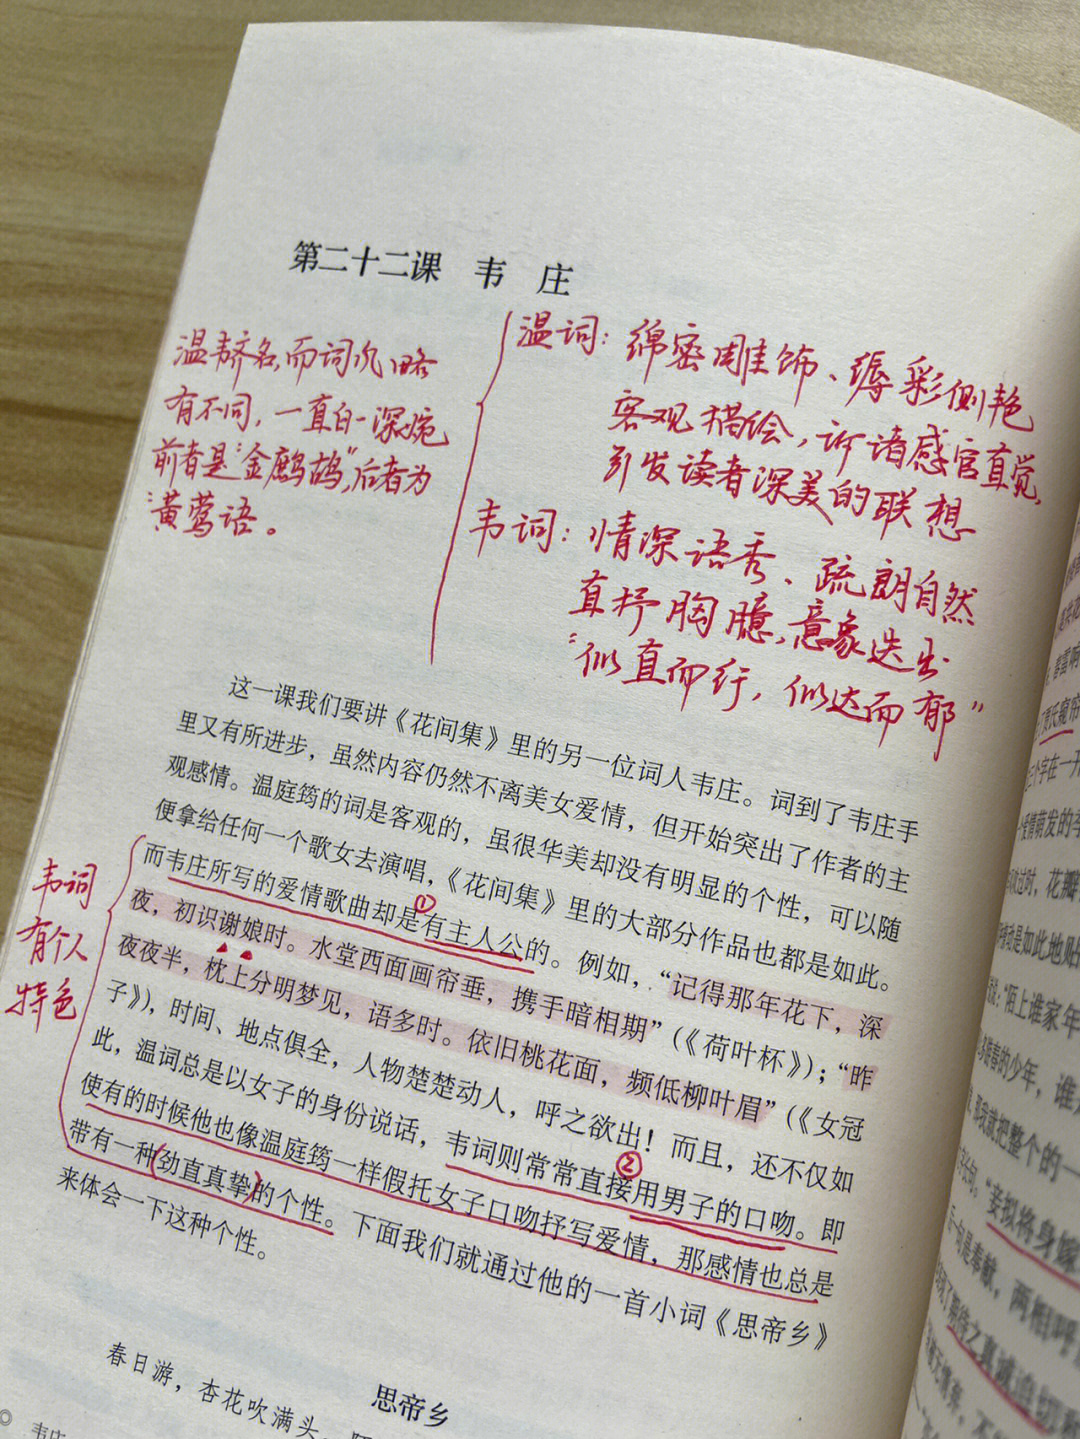 第二十二课 韦 庄
温韦齐名,而词风略
有不同，一直白一深婉
前者是“金鹧鸪”,后者为
“黄莺语。
温词：绵密雕饰、缛彩侧艳
客观描绘，诉诸感官直觉,
引发读者深美的联想
韦词：情深语秀、疏朗自然
直抒胸臆,意象迭出
“似直而行，似达而郁”
这一课我们要讲《花间集》里的另一位词人韦庄。词到了韦庄手
里又有所进步，虽然内容仍然不离美女爱情，但开始突出了作者的主
观感情。温庭筠的词是客观的，虽很华美却没有明显的个性，可以随
便拿给任何一个歌女去演唱，《花间集》里的大部分作品也都是如此。
而韦庄所写的爱情歌曲却是有主人公的。例如，“记得那年花下，深
①
夜，初识谢娘时。水堂西面画帘垂，携手暗相期”（《荷叶杯》）；“昨
夜夜半，枕上分明梦见，语多时。依旧桃花面，频低柳叶眉”（《女冠
子》），时间、地点俱全，人物楚楚动人，呼之欲出！而且，还不仅如
此，温词总是以女子的身份说话，韦词则常常直接用男子的口吻。即
②
使有的时候他也像温庭筠一样假托女子口吻抒写爱情，那感情也总是
带有一种(劲直真挚)的个性。下面我们就通过他的一首小词《思帝乡》
来体会一下这种个性。
韦词
有个人
特色
思帝乡
春日游，杏花吹满头，
韦庄
花瓣
“陌上谁家年
的少年，谁
那我就把整个的一
“妾拟将身嫁
后一句是奉献，两相呼